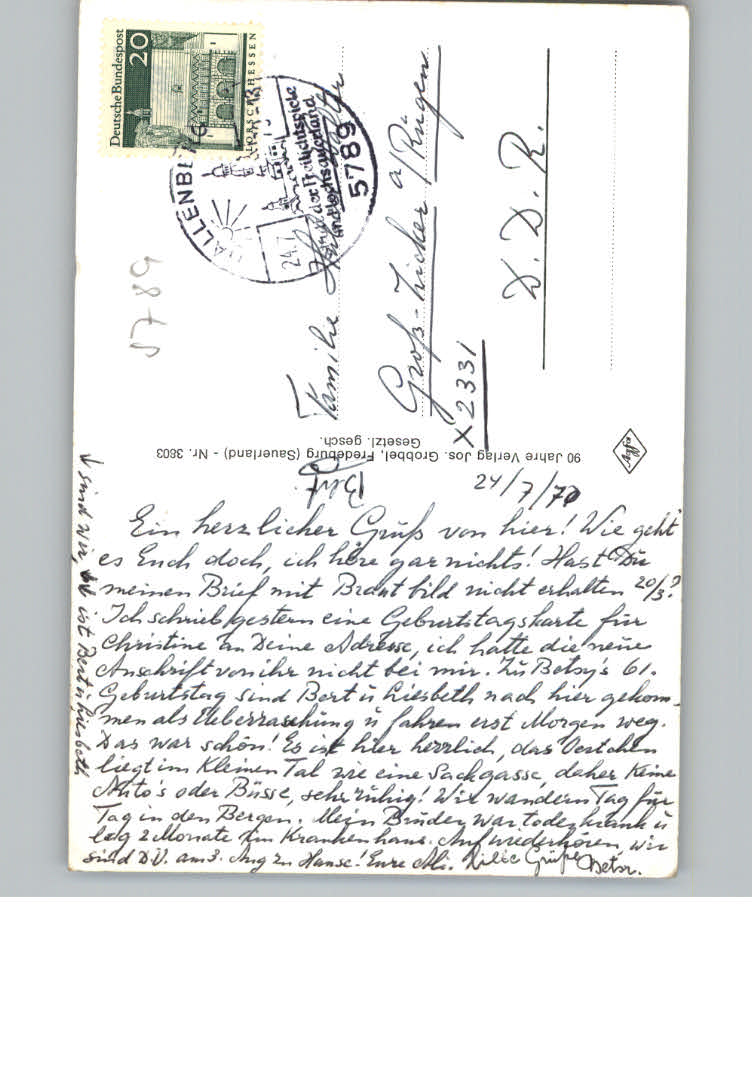 Deutsche Bundespost
20
LORSCH/HESSEN
HALLENBERG
24.7
der Freilichtspiele
5789
5789
Familie
Groß-Zicker a/Rügen
X2331
D. D. R.
90 Jahre Verlag Jos. Grobbel, Fredeburg (Sauerland) - Nr. 3603
Gesetzl. gesch.
Agfa
24/7/70
Ein herzlicher Gruß von hier! Wie geht
es Euch doch, ich höre gar nichts! Hast Du
meinen Brief mit Brautbild nicht erhalten 20/3?
Ich schrieb gestern eine Geburtstagskarte für
Christine an Deine Adresse, ich hatte die neue
Anschrift von ihr nicht bei mir. Zu Betsy's 61.
Geburtstag sind Bert u Liesbeth nach hier gekom-
men als Ueberraschung u fahren erst Morgen weg.
Das war schön! Es ist hier herrlich, das Oertchen
liegt im Kleinen Tal wie eine Sackgasse, daher Keine
Auto's oder Büsse, sehr ruhig! Wir wandern Tag für
Tag in den Bergen. Mein Bruder war todeskrank u
lag 2 Monate im Krankenhaus. Auf wiederhören, wir
sind D.V. am 3. Aug zu Hause! Eure Ali. Viele Grüße
sind wir, ist Bert u Liesbeth